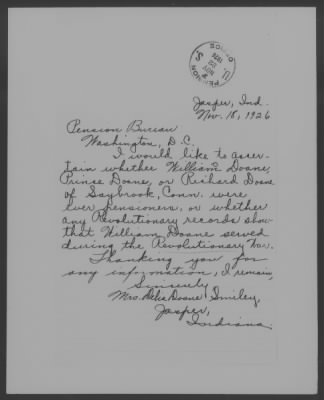 U.S. PENSION OFFICE
NOV
1926
Jasper, Ind.
Nov. 18, 1926
Pension Bureau
Washington, D.C.
I would like to ascer-
tain whether William Doane,
Prince Doane, or Richard Doane
of Saybrook, Conn. were
ever pensioners, or whether
any Revolutionary records show
that William Doane served
during the Revolutionary War.
Thanking you for
any information, I remain,
Sincerely
Mrs. Delia Doane Smiley,
Jasper,
Indiana.